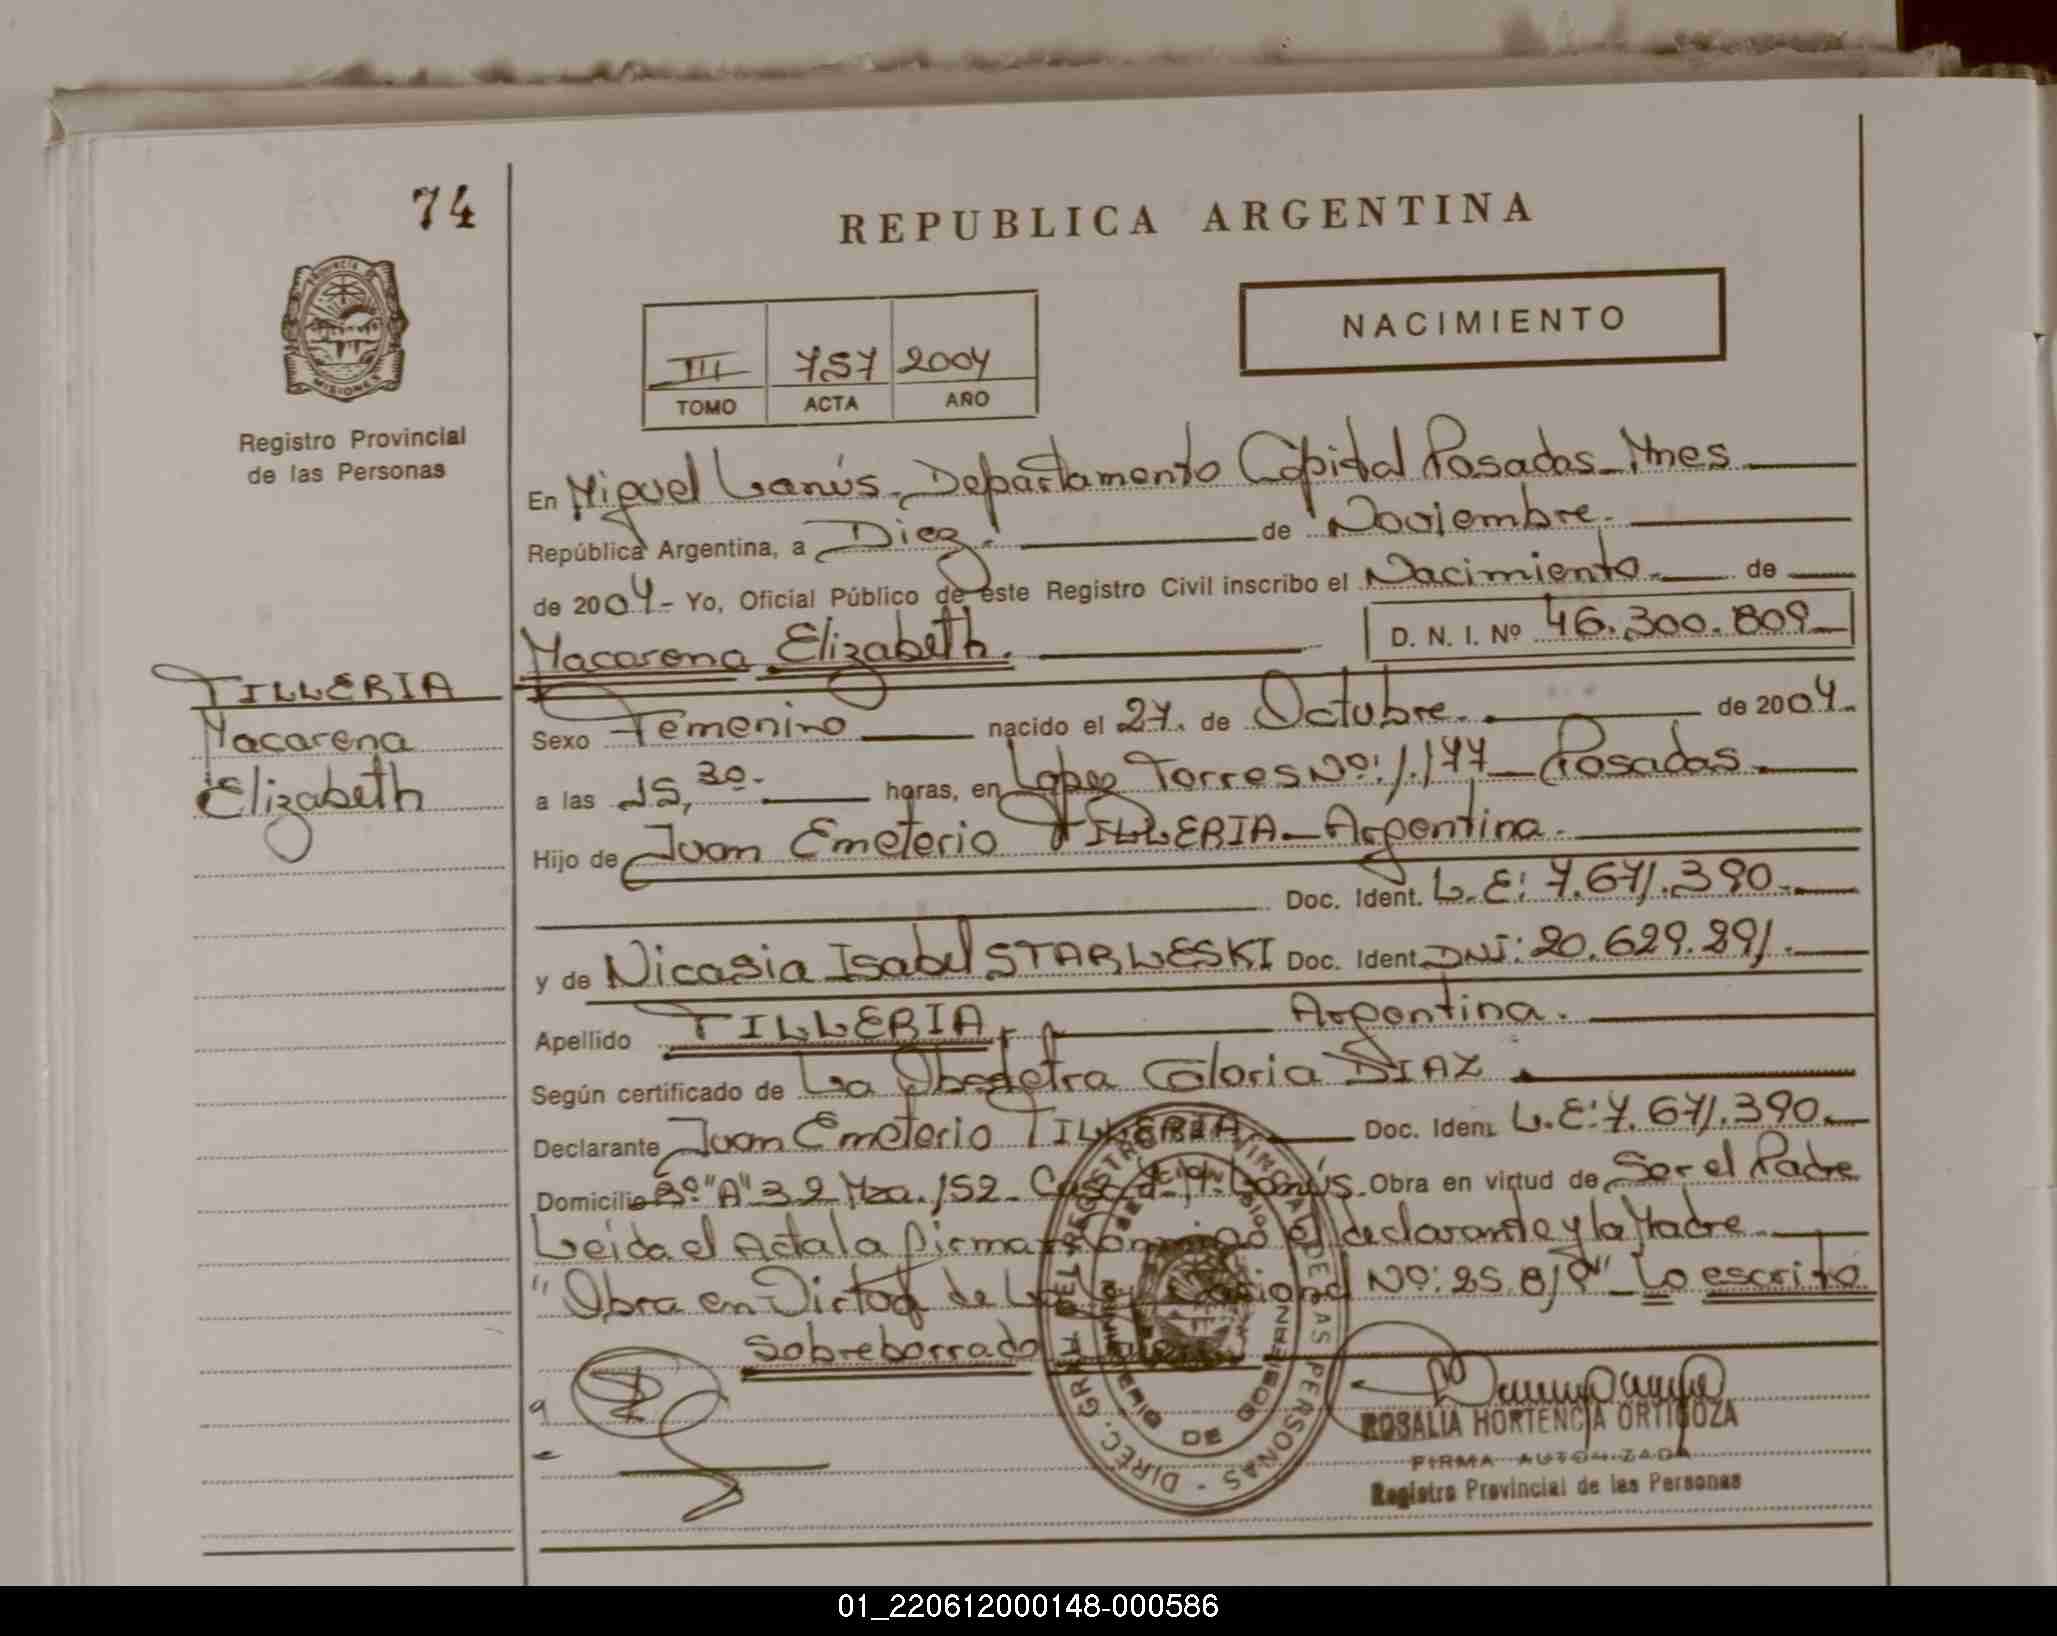 74
REPUBLICA ARGENTINA
PROVINCIA DE
MISIONES
NACIMIENTO
III 757 2004
TOMO ACTA AÑO
Registro Provincial
de las Personas
En Miguel Lanús. Departamento Capital Posadas Mnes
República Argentina, a Diez. de Noviembre.
de 2004- Yo, Oficial Público de este Registro Civil inscribo el Nacimiento. de
Macarena Elizabeth. D. N. I. Nº 46.300.809
TILLERIA
Macarena
Elizabeth
Sexo Femenino nacido el 27. de Octubre. de 2004.
a las 15,30. horas, en Lopez Torres Nº: 1.177 Posadas
Hijo de Juan Emeterio TILLERIA Argentina.
Doc. Ident. L.E: 7.671.390.
y de Nicasia Isabel STARLESKI Doc. Ident DNI: 20.629.291.
Apellido TILLERIA Argentina.
Según certificado de La Obstetra Gloria DIAZ
Declarante Juan Emeterio TILLERIA Doc. Ident. L.E: 7.671.390.
Domicilio Bº "A" 32 Mza. 152 Casa M. Lanús. Obra en virtud de Ser el Padre
Leida el Acta la firma conmigo el declarante y la Madre
"Obra en Virtud de La Ley Nacional Nº: 25.819" Lo escrito
Sobreborrado
DIREC. GRAL. DEL REGISTRO PROVINCIAL DE LAS PERSONAS
DE GOBIERNO
ROSALIA HORTENCIA ORTIGOZA
FIRMA AUTORIZADA
Registro Provincial de las Personas
01_220612000148-000586